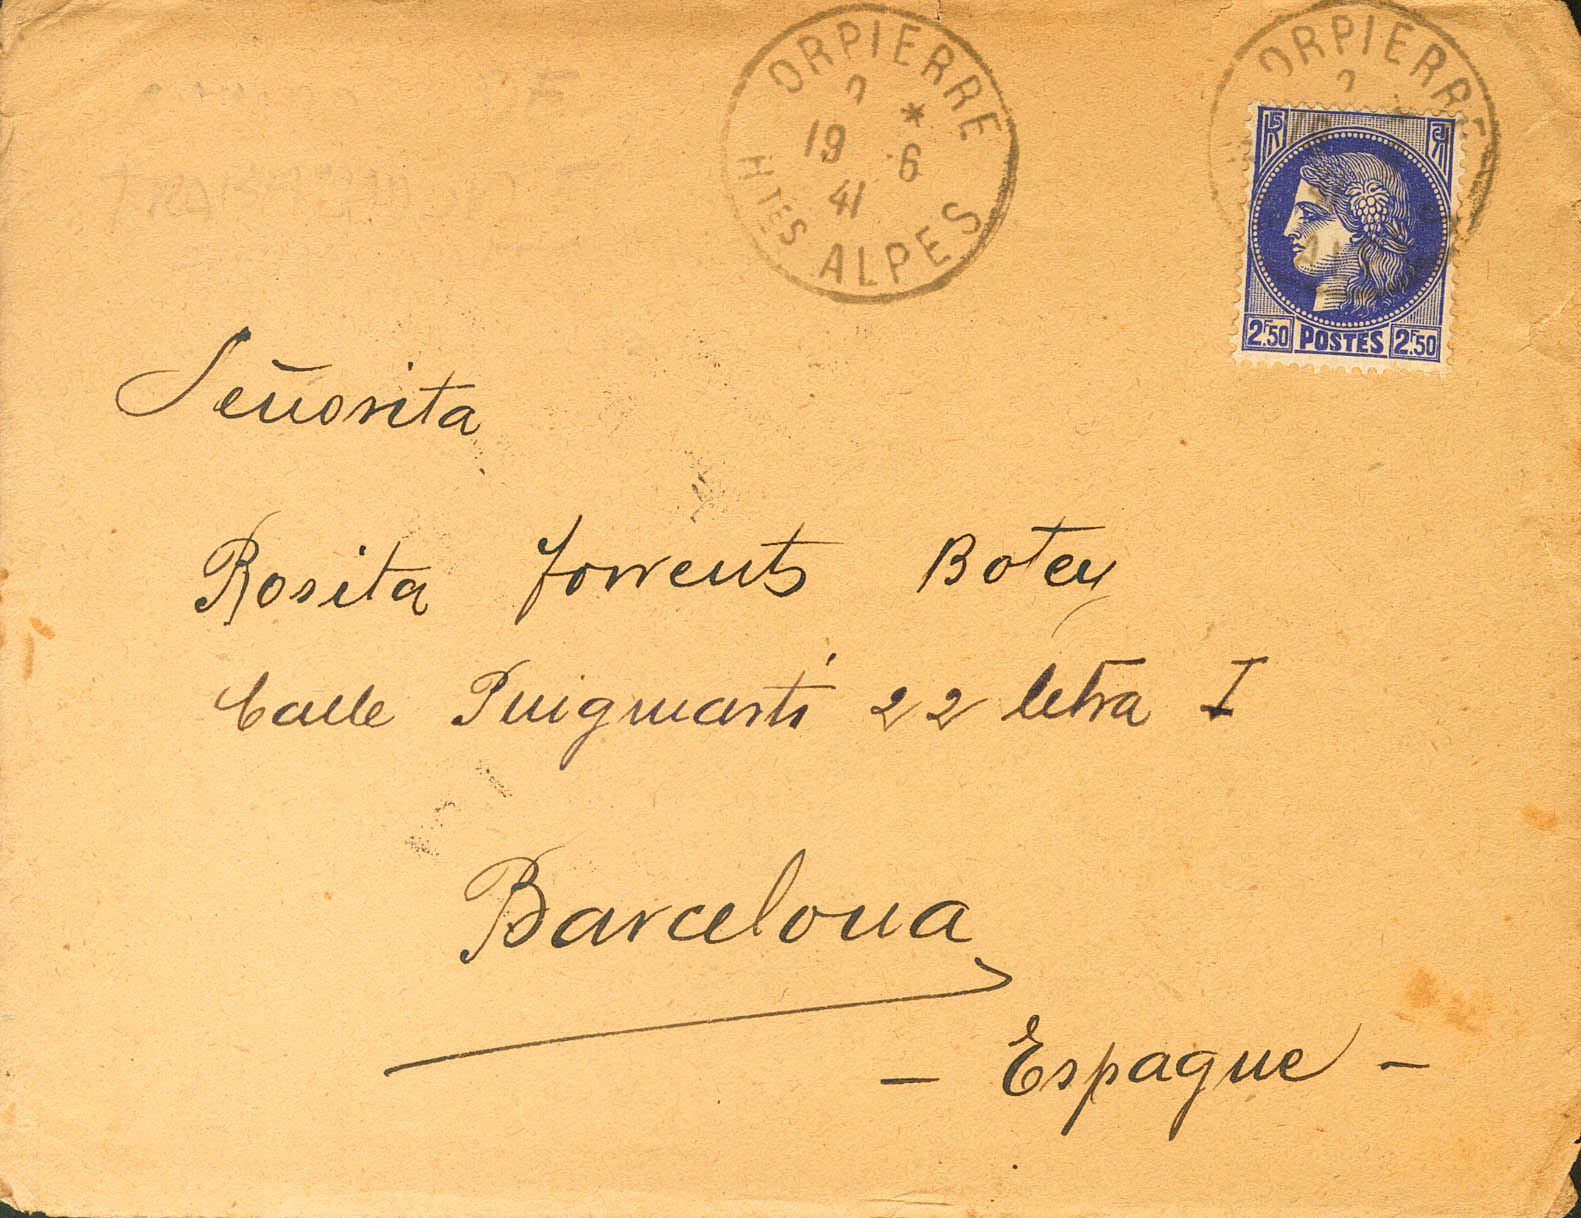 ORPIERRE
19 6
41
Htes ALPES
ORPIERRE
RF
2F50 POSTES 2F50
Señorita
Rosita Torrents Botey
Calle Puigmartí 22 letra I
Barcelona
- Espagne -